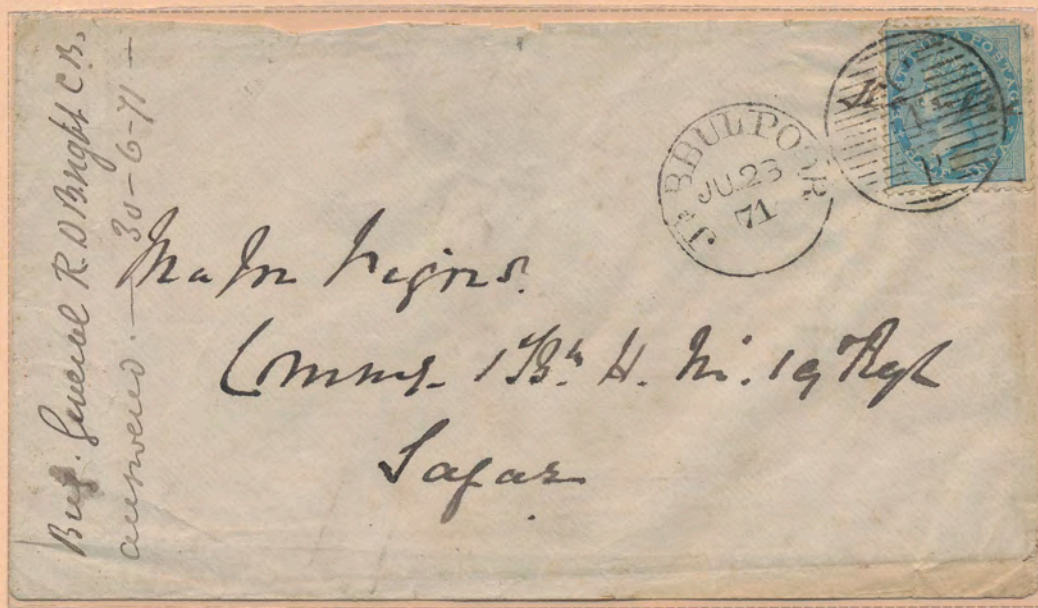 Brig. General R. O Bright C.B.
answered. — 30-6-71 —
JUBBULPOOR
JU.23
71
Major
Commg. 1 Bn H. M. 19 Regt